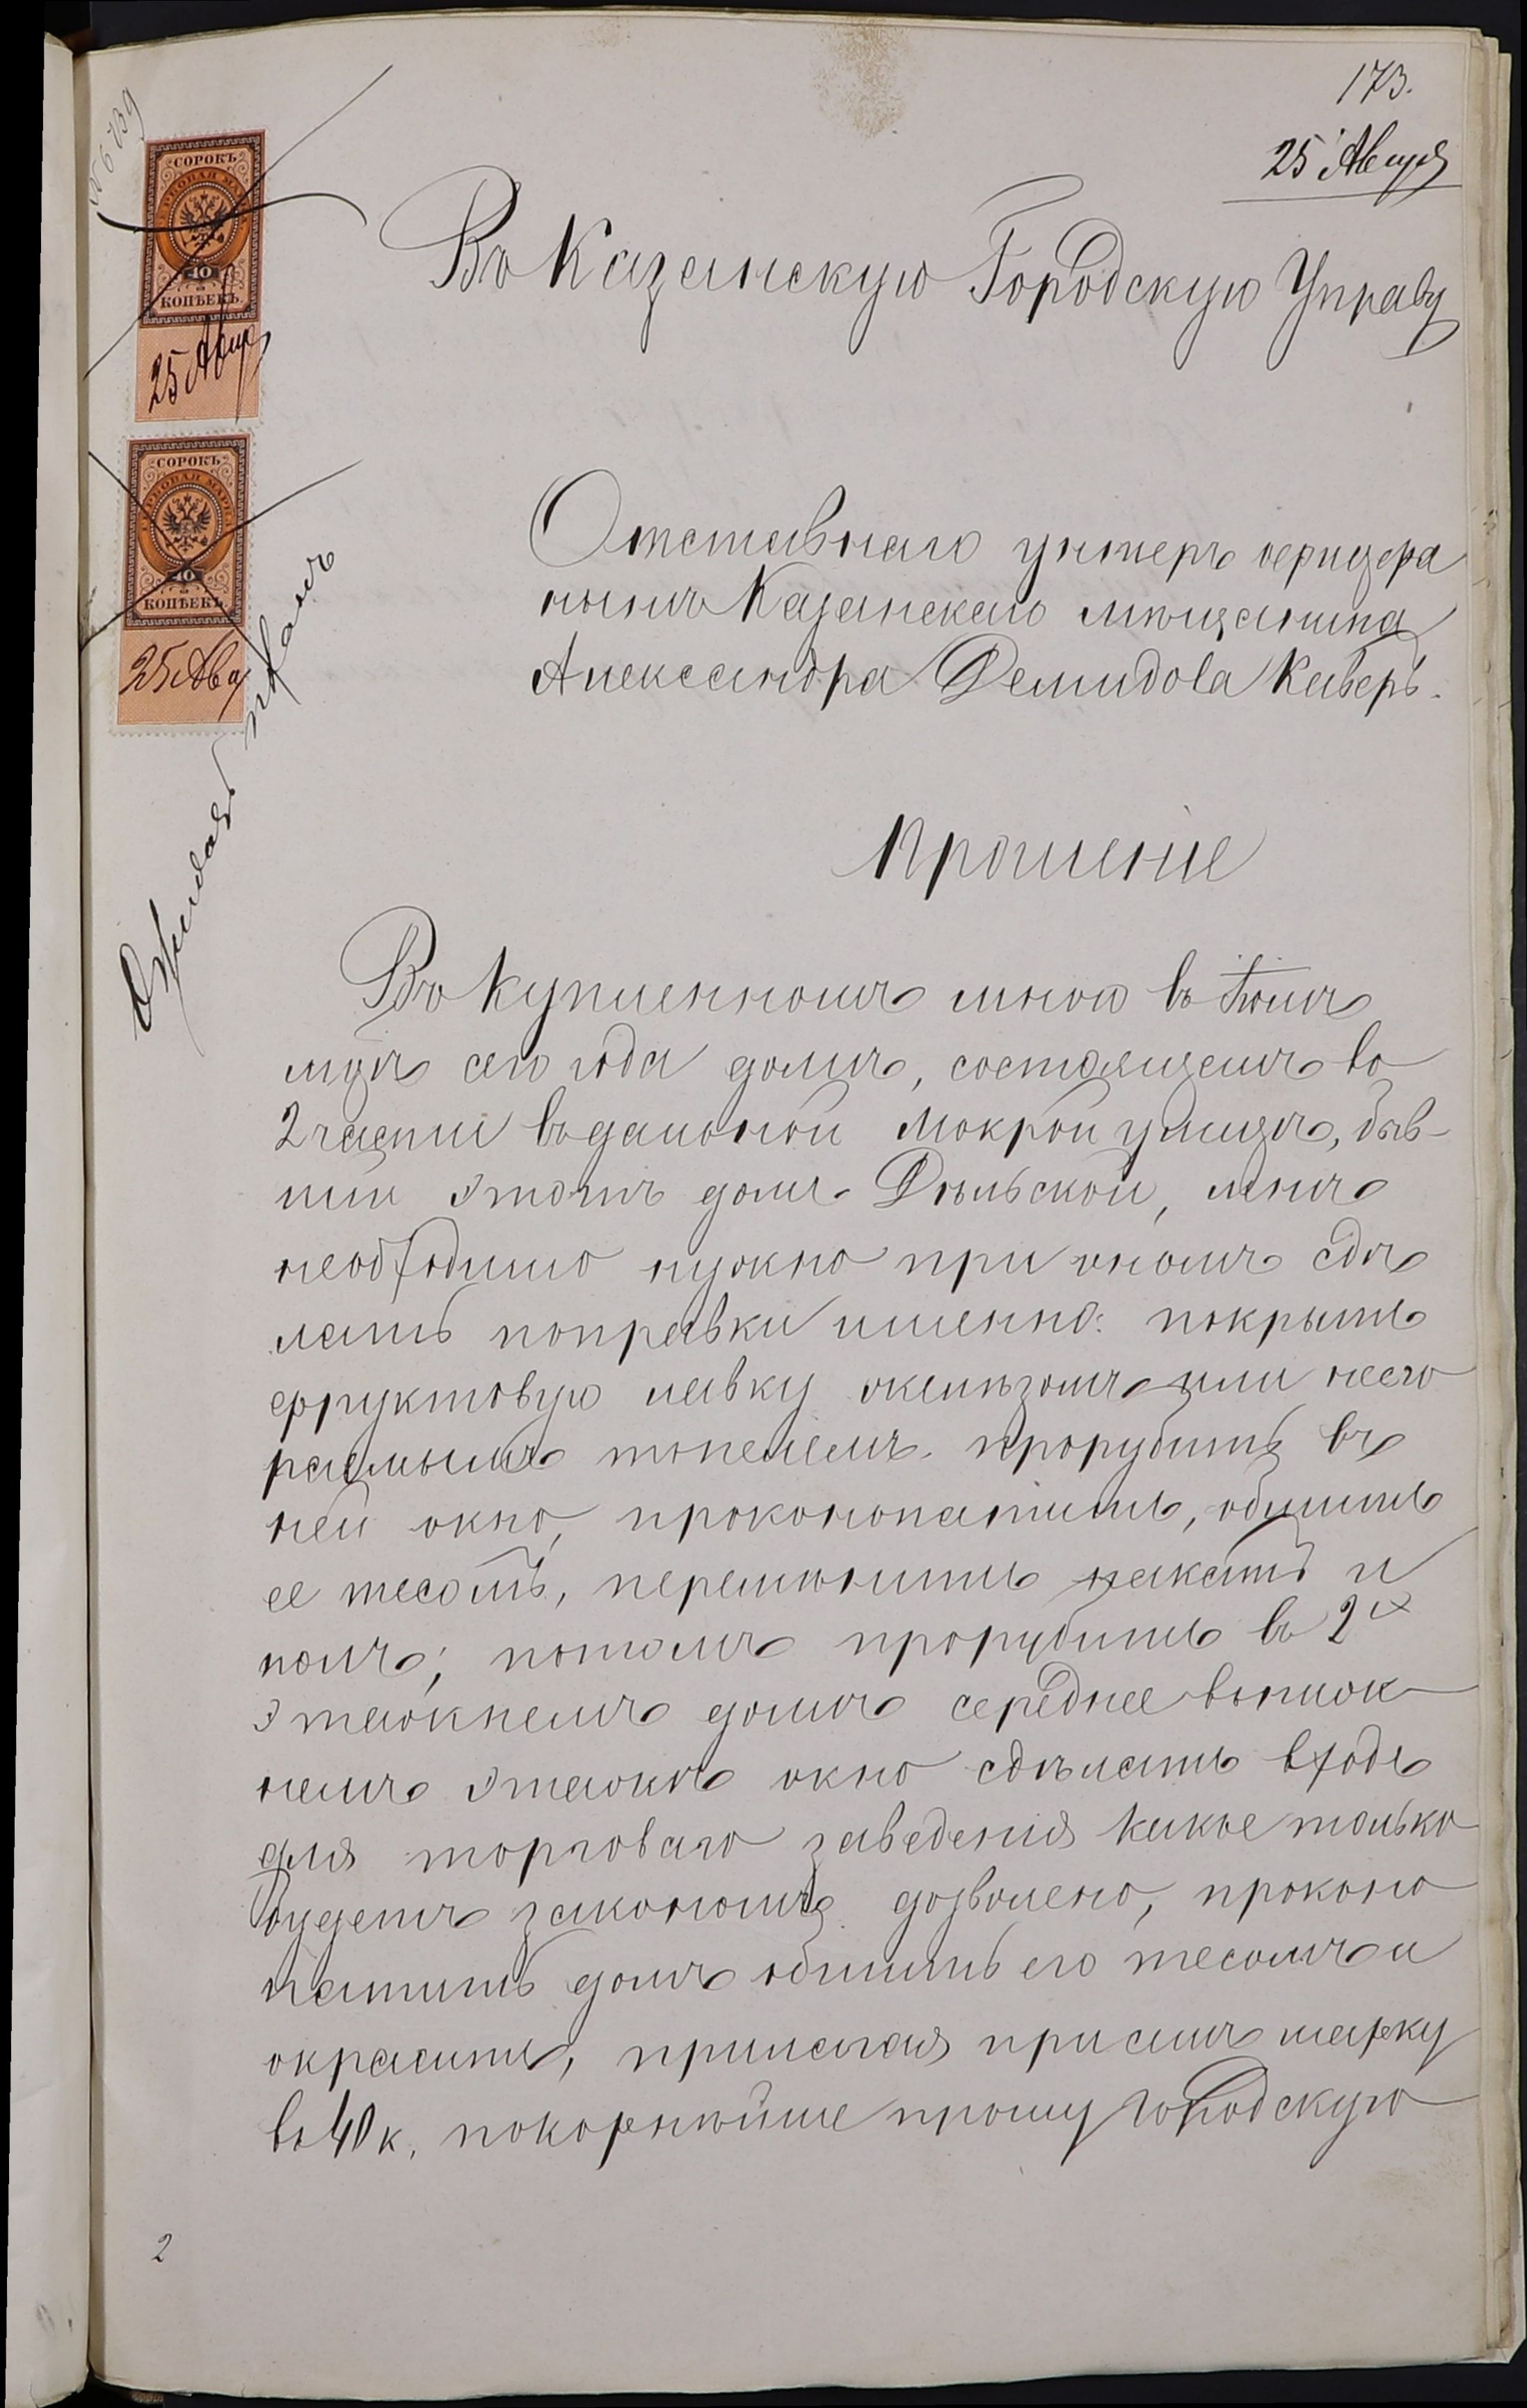 173.
25 Август
№ 6739
СОРОКЪ
ГЕРБОВАЯ МАРКА
40
КОПѢЕКЪ
25 Авгус
СОРОКЪ
ГЕРБОВАЯ МАРКА
40
КОПѢЕКЪ
25 Авгу
Въ Казанскую Городскую Управу
Отставнаго унтеръ офицера
нынѣ Казанскаго мѣщанина
Александра Демидова Каверъ.
Прошеніе
Въ купленномъ мною въ Іюнѣ
мцѣ сего года домѣ, состоящемъ во
2 части въ дальной Мокрой улицѣ, быв-
шій этотъ домъ Дѣльской, мнѣ
необходимо нужно при ономъ сдѣ
лать поправки именно: покрыть
фруктовую лавку желѣзомъ или несго
раемымъ толемъ. прорубить въ
ней окно, проконопатить, обшить
ее тесомъ, перемѣнить накатъ и
полъ; потомъ прорубить въ 2х
этажнемъ домѣ середнее въ ниж
немъ этажѣ окно сдѣлать входъ
для торговаго заведенія какое только
будетъ закономъ дозволено, проконо
патить домъ обшить его тесомъ и
окрасить, прилагая при семъ марку
въ 40 к. покорнѣйше прошу Городскую
2